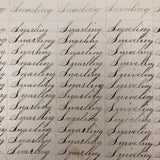 Snarling Snarling Sniveling
Snarling Snarling Sniveling
Snarling Snarling Sniveling
Snarling Snarling Sniveling
Snarling Snarling Sniveling
Snarling Snarling Sniveling
Snarling Snarling Sniveling
Snarling Snarling Sniveling
Snarling Snarling Sniveling
Snarling Snarling Sniveling